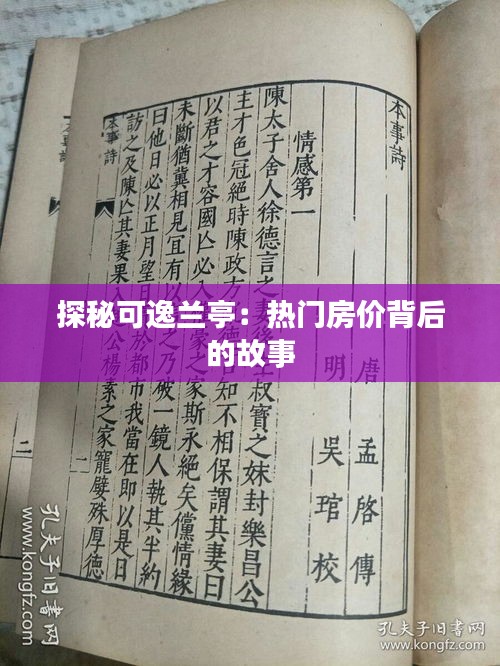 探秘可逸兰亭：热门房价背后
的故事
本事詩
唐 孟啓傳
明 吳琯校
情感第一
陳太子舍人徐德言之妻後叔寶之妹封樂昌公
主才色冠絕時陳政方知不相保謂其妻曰
以君之才容國亾必入豪之家斯永絕矣儻情緣
未斷猶冀相見宜有以之乃破一鏡人執其半約
曰他日必以正月望於都市我當在即以是日
訪之及陳亾其妻果入公楊素之家寵嬖殊厚德
本事詩
一
二
孔夫子旧书网
www.kongfz.com
孔夫子旧书网
www.kongfz.com